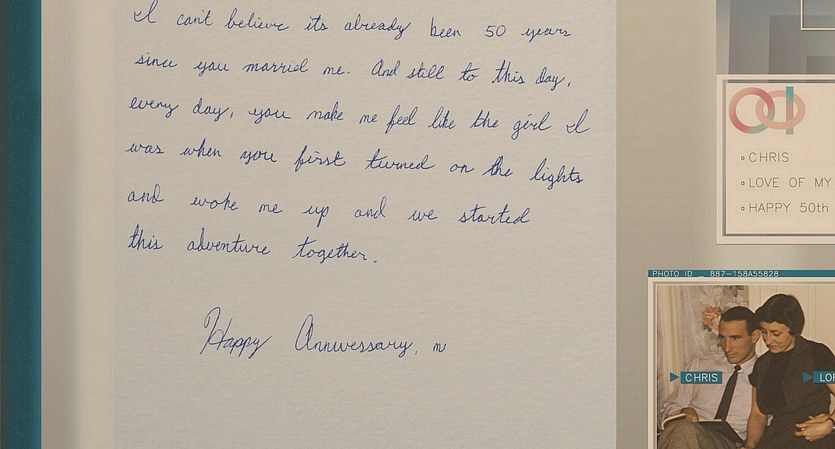 I can't believe its already been 50 years
since you married me. And still to this day,
every day, you make me feel like the girl I
was when you first turned on the lights
and woke me up and we started
this adventure together.
Happy Anniversary, m
CHRIS
LOVE OF MY
HAPPY 50th
PHOTO ID _ 887-158A55828
CHRIS
LO